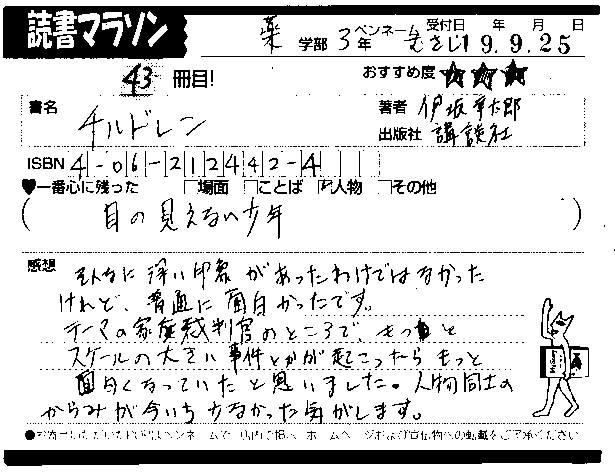 読書マラソン
薬 学部 3年 ペンネーム むさし 受付日 19年9月25日
43 冊目! おすすめ度 ★★★
書名 チルドレン 著者 伊坂幸太郎
出版社 講談社
ISBN 4-06-212442-4
♥一番心に残った □場面 □ことば ☑人物 □その他
( 目の見えない少年 )
感想 そんなに深い印象があったわけではなかった
けれど、普通に面白かったです。
テーマの家庭裁判官のところで、もっと
スケールの大きい事件とかが起こったらもっと
面白くなっていたと思いました。人物同士の
からみが今いち少なかった気がします。